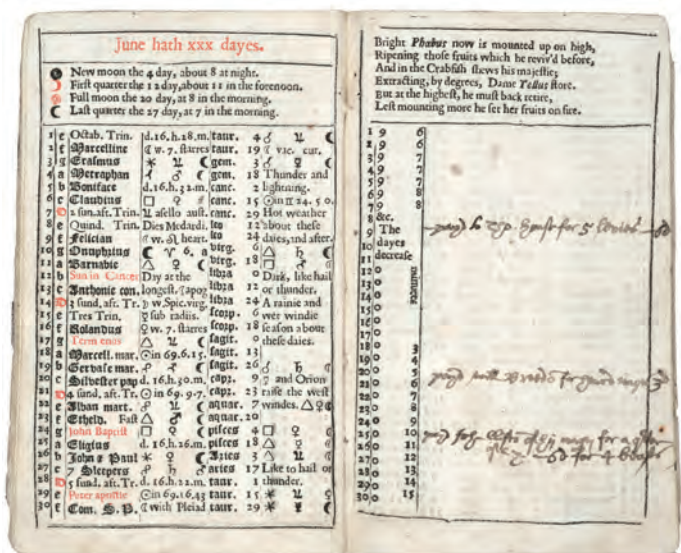 June hath xxx dayes.
New moon the 4 day, about 8 at night.
First quarter the 12 day, about 11 in the forenoon.
Full moon the 20 day, at 8 in the morning.
Last quarter the 27 day, at 7 in the morning.
1 e Octab. Trin. d.16.h.28.m. taur. 4 ☌ ♃ ☾
2 f Marcelline ☾ w. 7. starres taur. 19 ☾ vac. cur.
3 g Erasmus ⚹ ♃ ☾ gem. 3 ☌ ☿ ☾
4 a Metraphan ☾ gem. 18 Thunder and
5 b Boniface d.16.h.32.m. canc. 2 lightning.
6 c Claudius □ ♀ canc. 15 ☉ in ♊ 24. 5 0.
7 D 2 sun.aft. Trin. ♃ asello aust. canc. 29 Hot weather
8 e Quind. Trin. Dies Medardi. leo 12 about these
9 f Felician ☾ w. ♌ heart. leo 24 daies, and after.
10 g Onuphius ☾ ♈ 6. a virg. 6 △ ♄ ☾
11 a Barnabie △ ♀ ☾ virg. □
12 b Sun in Cancer Day at the libra 0 Dark, like hail
13 c Anthonie con. longest. ☾apog libra 12 or thunder.
14 D 3 sund. aft. Tr. ☽ w. Spic. virg. libra 24 A rainie and
15 e Tres Trin. ☿ sub radiis. scorp. 6 wer windie
16 f Rolandus ♀ w. 7. starres scorp. 18 season about
17 g Term ends △ ♃ ☾ sagit. 0 these daies.
18 a Marcell. mar. ☉ in 69.6.15. sagit. 13
19 b Gervase mar. ☾ sagit. 26 ☌ ♄ ☾
20 c Silvester pap d.16.h.30.m. capr. 9 and Orion
21 D 4 sund. aft. Tr. ☉ in 69. 9.7. capr. 23 raise the west
22 e Alban mart. ☍ ♃ ☾ aquar. 7 windes. △ ♀ ☾
23 f Etheld. Fast △ ♂ ☾ aquar. 20
24 g John Baptist □ ♀ ☾ pisces 4 □ ♀ ☾
25 a Eligius d.16.h.26.m. pisces 18 △ ♀ ☾
26 b John & Paul ⚹ ♀ ☾ Aries 3 △ ♃ ☾
27 c 7 Sleepers ☍ ♄ ♂ aries 17 Like to hail or
28 D 5 sund. aft. Tr. d.16.h.22.m. taur. 1 thunder.
29 e Peter apostle ☉ in 69.16.43 taur. 15 ⚹ ♃ ☾
30 f Com. S. P. ☾ with Pleiad taur. 29 ⚹ ☿ ☾
Bright Phœbus now is mounted up on high,
Ripening those fruits which he reviv'd before,
And in the Crabfish shews his majestie;
Extracting, by degrees, Dame Tellus store.
But at the highest, he must back retire,
Lest mounting more he set her fruits on fire.
1 9 6
2 9 6
3 9 7
4 9 7
5 9 7
6 9 8
7 9 8
8 &c.
9 The
10 dayes
11 decrease
12 0 minutes
13 0
14 0
15 0
16 0
17 0
18 0 3
19 0 4
20 0 5
21 0 6
22 0 7
23 0 8
24 0 9
25 0 10
26 0 11
27 0 12
28 0 13
29 0 14
30 0 15